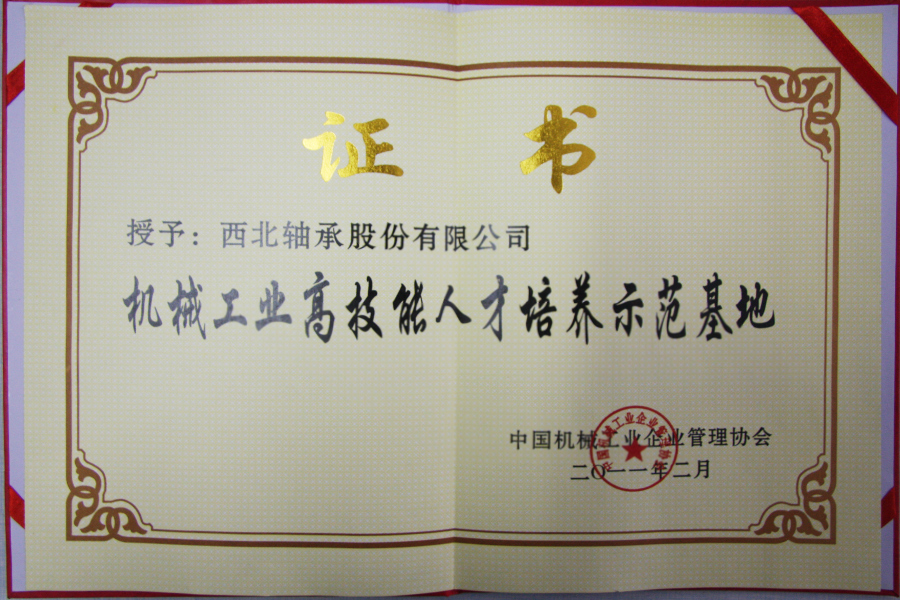 证书
授予：西北轴承股份有限公司
机械工业高技能人才培养示范基地
中国机械工业企业管理协会
二〇一一年二月
中国机械工业企业管理协会